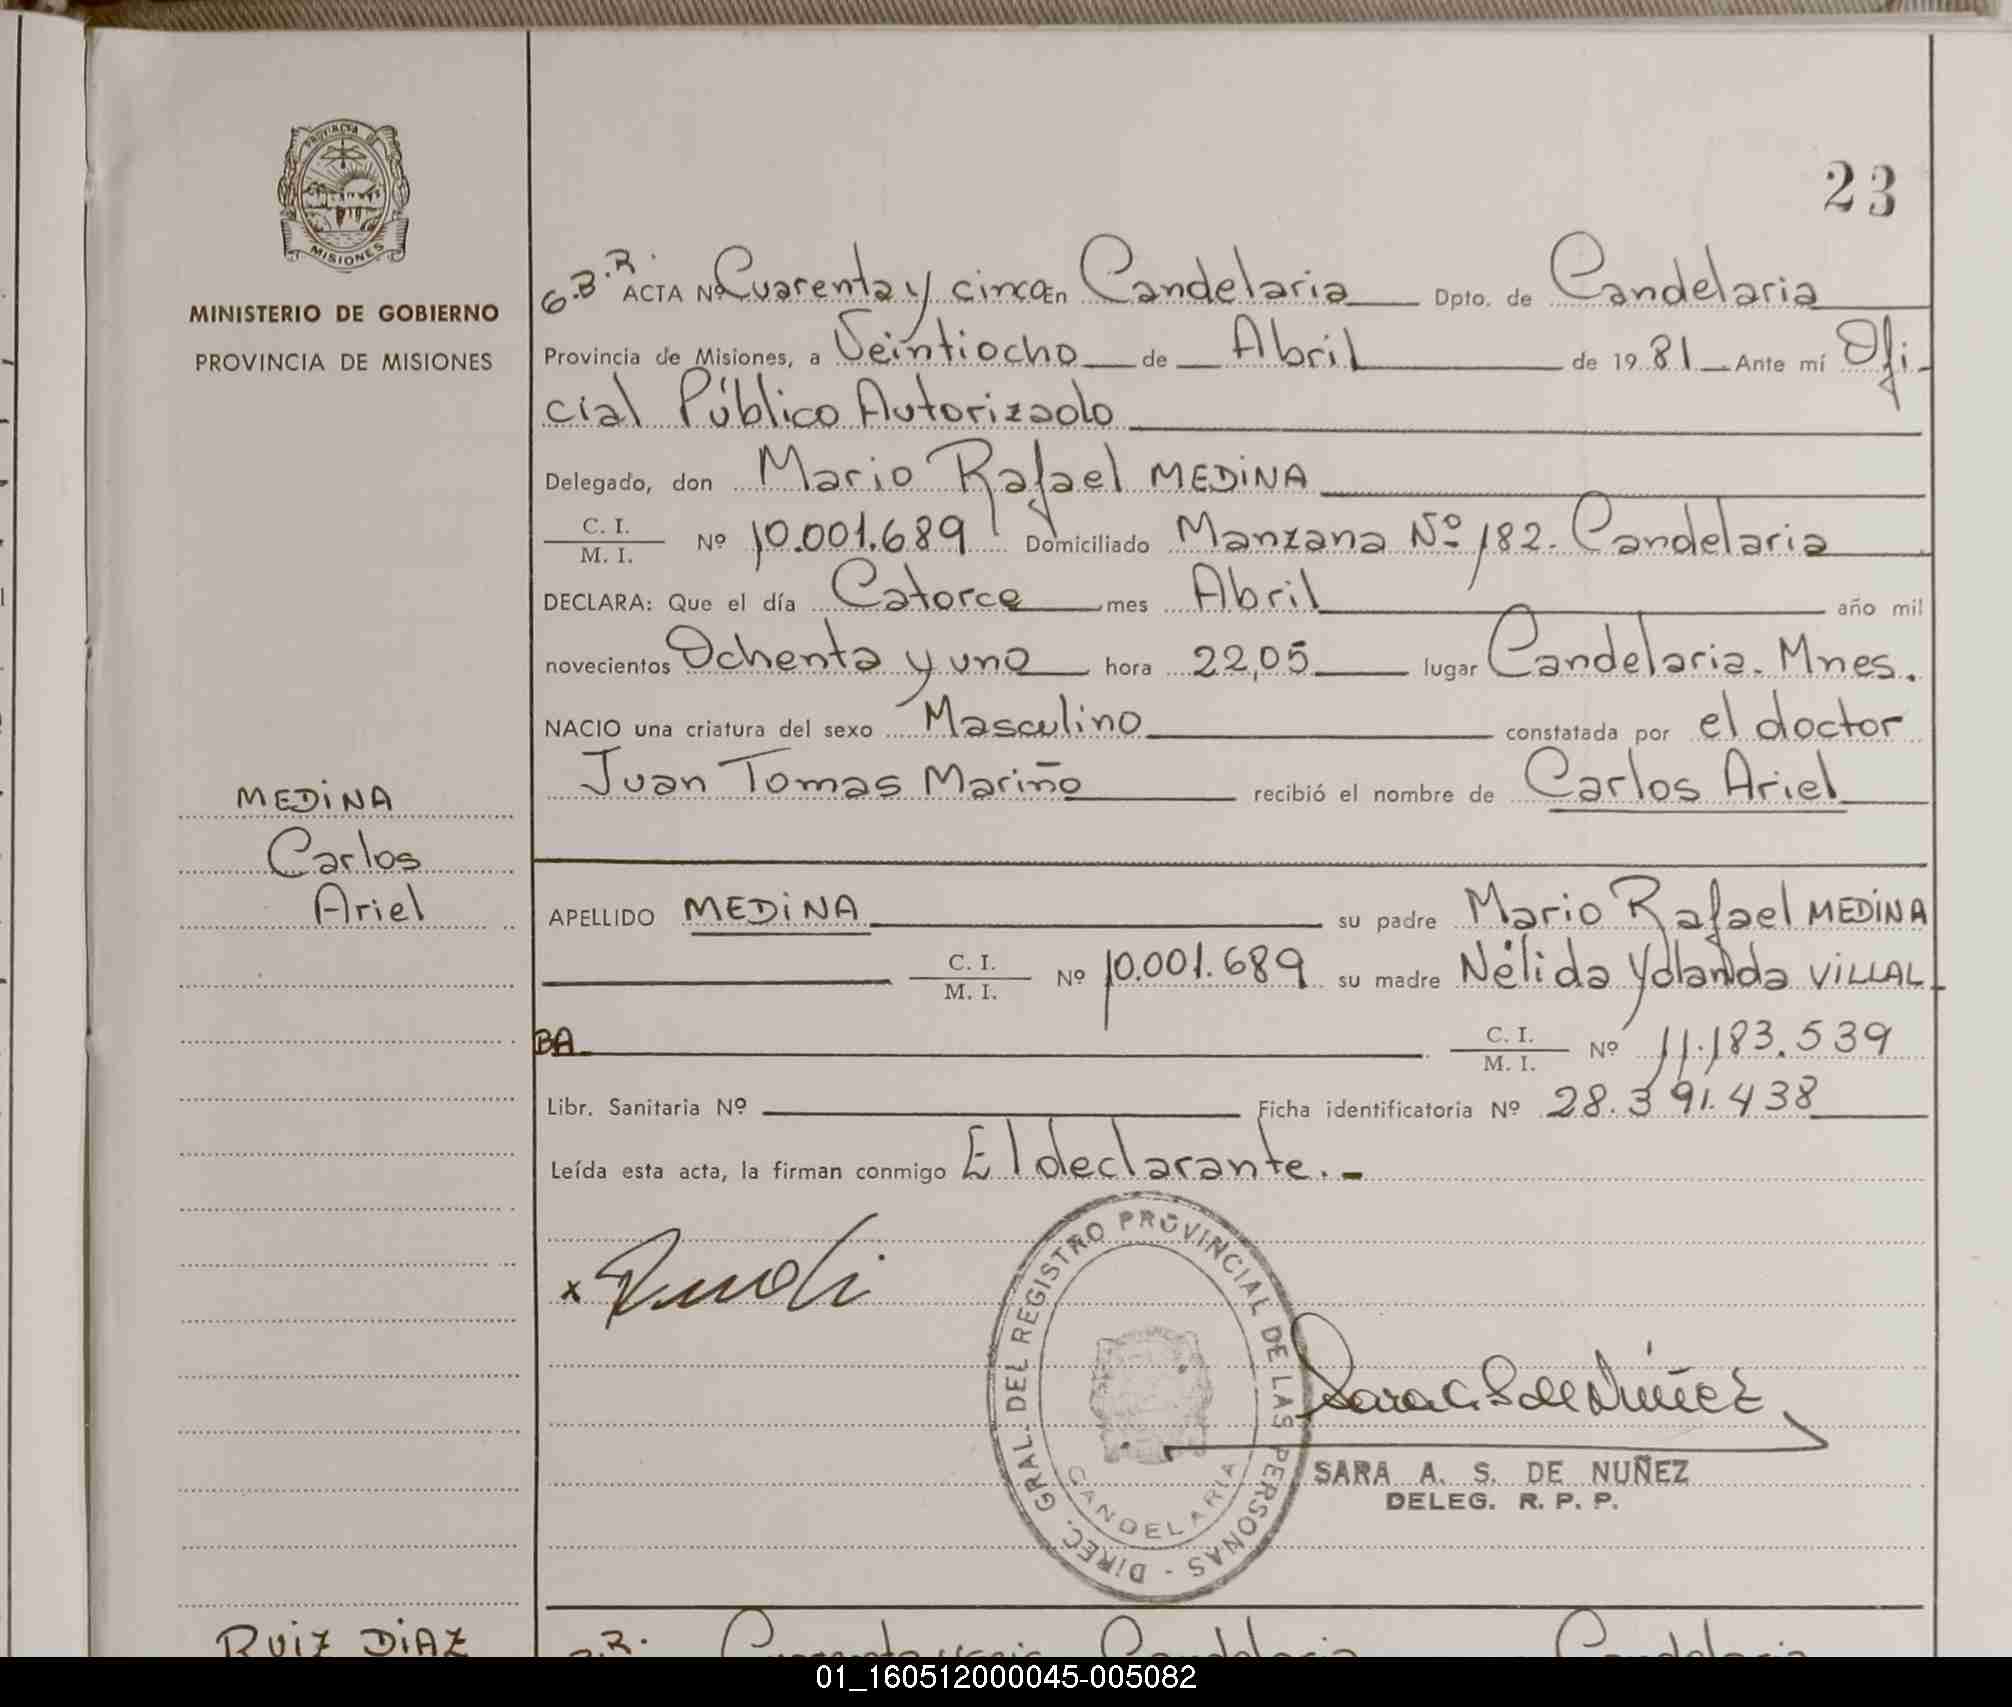 PROVINCIA
MISIONES
MINISTERIO DE GOBIERNO
PROVINCIA DE MISIONES
MEDINA
Carlos
Ariel
RUIZ DIAZ
23
G.B.R. ACTA Nº Cuarenta y cinco En Candelaria Dpto. de Candelaria
Provincia de Misiones, a Veintiocho de Abril de 1981 Ante mí Ofi-
cial Público Autorizado
Delegado, don Mario Rafael MEDINA
C. I.
M. I. Nº 10.001.689 Domiciliado Manzana Nº 182. Candelaria
DECLARA: Que el día Catorce mes Abril año mil
novecientos Ochenta y uno hora 22,05 lugar Candelaria. Mnes.
NACIO una criatura del sexo Masculino constatada por el doctor
Juan Tomas Mariño recibió el nombre de Carlos Ariel
APELLIDO MEDINA su padre Mario Rafael MEDINA
C. I.
M. I. Nº 10.001.689 su madre Nélida Yolanda VILLAL-
BA C. I.
M. I. Nº 11.183.539
Libr. Sanitaria Nº Ficha identificatoria Nº 28.391.438
Leída esta acta, la firman conmigo El declarante.-
x
DIREC. GRAL. DEL REGISTRO PROVINCIAL DE LAS PERSONAS -
CANDELARIA
SARA A. S. DE NUÑEZ
DELEG. R. P. P.
Candelaria Candelaria
01_160512000045-005082